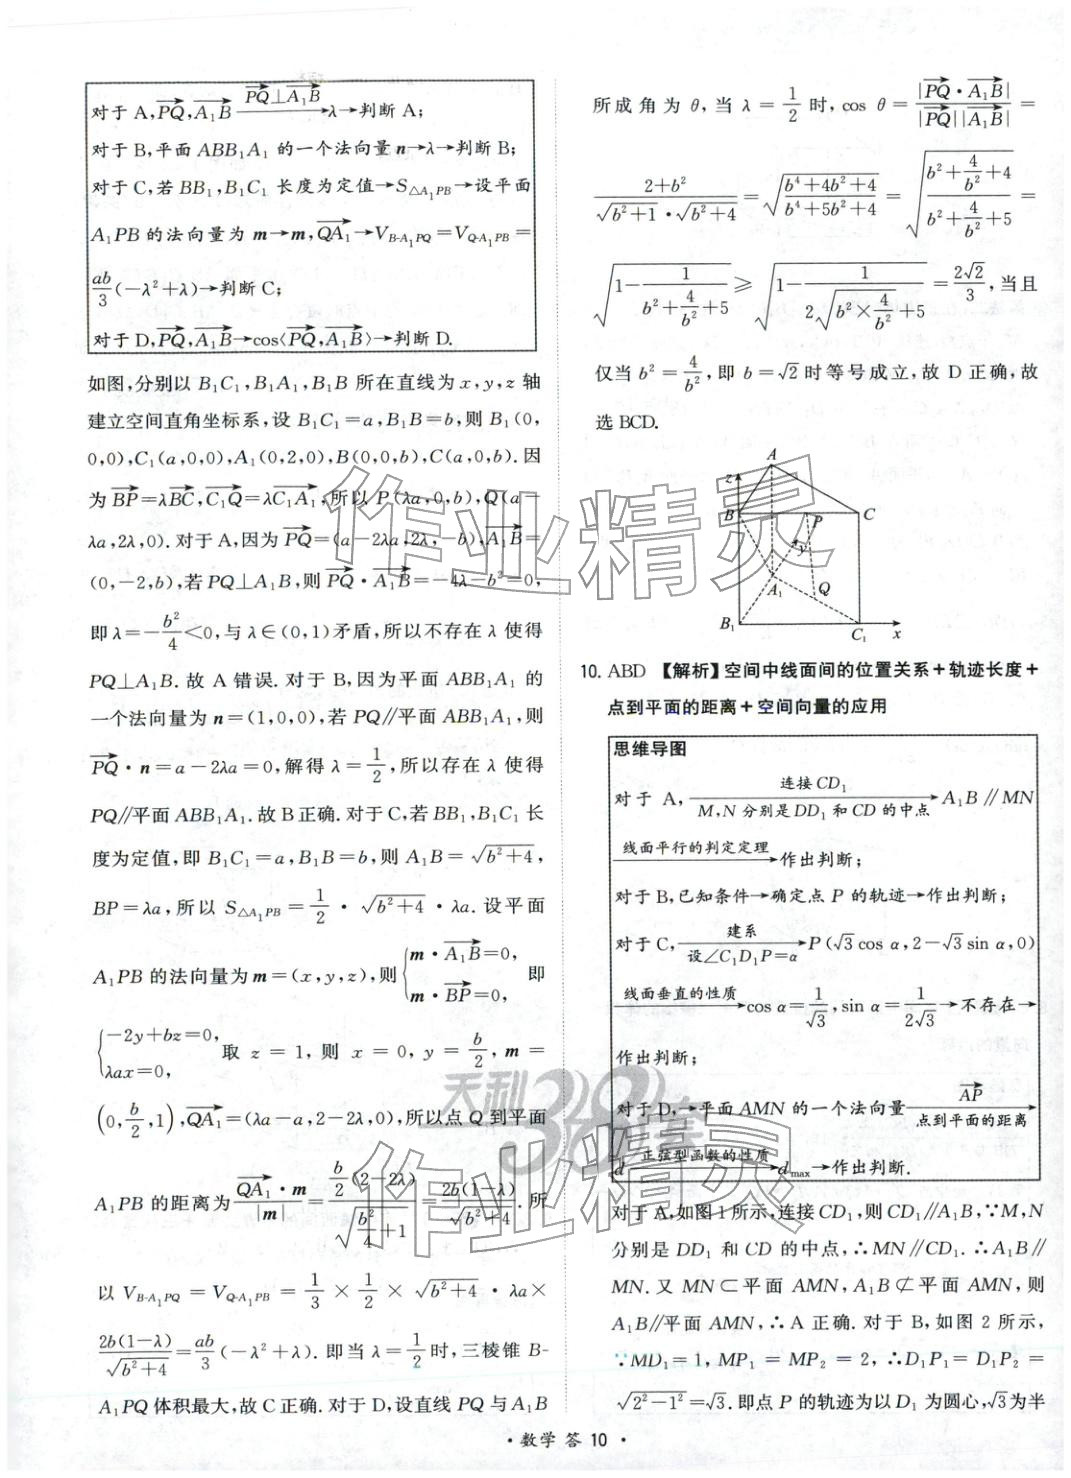 对于 A,$\overrightarrow{PQ}$,$\overrightarrow{A_1B}$ $\xrightarrow{\overrightarrow{PQ}⊥\overrightarrow{A_1B}}$ λ→判断 A;
对于 B,平面 ABB₁A₁ 的一个法向量 n→λ→判断 B;
对于 C,若 BB₁,B₁C₁ 长度为定值→$S_{△A_1PB}$→设平面
A₁PB 的法向量为 m→m,$\overrightarrow{QA_1}$→$V_{B-A_1PQ}=V_{Q-A_1PB}=$
$\frac{ab}{3}(-λ^2+λ)$→判断 C;
对于 D,$\overrightarrow{PQ}$,$\overrightarrow{A_1B}$→cos⟨$\overrightarrow{PQ}$,$\overrightarrow{A_1B}$⟩→判断 D.
如图,分别以 B₁C₁,B₁A₁,B₁B 所在直线为 x,y,z 轴
建立空间直角坐标系,设 B₁C₁=a,B₁B=b,则 B₁(0,
0,0),C₁(a,0,0),A₁(0,2,0),B(0,0,b),C(a,0,b).因
为 $\overrightarrow{BP}=λ\overrightarrow{BC}$,$\overrightarrow{C_1Q}=λ\overrightarrow{C_1A_1}$,所以 P(λa,0,b),Q(a-
λa,2λ,0).对于 A,因为 $\overrightarrow{PQ}$=(a-2λa,2λ,-b),$\overrightarrow{A_1B}$=
(0,-2,b),若 PQ⊥A₁B,则 $\overrightarrow{PQ}·\overrightarrow{A_1B}=-4λ-b^2=0$,
即 $λ=-\frac{b^2}{4}<0$,与 λ∈(0,1)矛盾,所以不存在 λ 使得
PQ⊥A₁B.故 A 错误.对于 B,因为平面 ABB₁A₁ 的
一个法向量为 n=(1,0,0),若 PQ∥平面 ABB₁A₁,则
$\overrightarrow{PQ}·n=a-2λa=0$,解得 $λ=\frac{1}{2}$,所以存在 λ 使得
PQ∥平面 ABB₁A₁.故 B 正确.对于 C,若 BB₁,B₁C₁ 长
度为定值,即 B₁C₁=a,B₁B=b,则 A₁B=$\sqrt{b^2+4}$,
BP=λa,所以 $S_{△A_1PB}=\frac{1}{2}·\sqrt{b^2+4}·λa$.设平面
A₁PB 的法向量为 m=(x,y,z),则 $\begin{cases}m·\overrightarrow{A_1B}=0,\\m·\overrightarrow{BP}=0,\end{cases}$ 即
$\begin{cases}-2y+bz=0,\\λax=0,\end{cases}$ 取 z=1,则 x=0,y=$\frac{b}{2}$,m=
$\left(0,\frac{b}{2},1\right)$,$\overrightarrow{QA_1}$=(λa-a,2-2λ,0),所以点 Q 到平面
A₁PB 的距离为 $\frac{\overrightarrow{QA_1}·m}{|m|}=\frac{\frac{b}{2}(2-2λ)}{\sqrt{\frac{b^2}{4}+1}}=\frac{2b(1-λ)}{\sqrt{b^2+4}}$.所
以 $V_{B-A_1PQ}=V_{Q-A_1PB}=\frac{1}{3}×\frac{1}{2}×\sqrt{b^2+4}·λa×$
$\frac{2b(1-λ)}{\sqrt{b^2+4}}=\frac{ab}{3}(-λ^2+λ)$.即当 $λ=\frac{1}{2}$ 时,三棱锥 B-
A₁PQ 体积最大,故 C 正确.对于 D,设直线 PQ 与 A₁B
所成角为 θ,当 $λ=\frac{1}{2}$ 时,$\cos θ=\frac{|\overrightarrow{PQ}·\overrightarrow{A_1B}|}{|\overrightarrow{PQ}||\overrightarrow{A_1B}|}=$
$\frac{2+b^2}{\sqrt{b^2+1}·\sqrt{b^2+4}}=\sqrt{\frac{b^4+4b^2+4}{b^4+5b^2+4}}=\sqrt{\frac{b^2+\frac{4}{b^2}+4}{b^2+\frac{4}{b^2}+5}}=$
$\sqrt{1-\frac{1}{b^2+\frac{4}{b^2}+5}}≥\sqrt{1-\frac{1}{2\sqrt{b^2×\frac{4}{b^2}}+5}}=\frac{2\sqrt{2}}{3}$,当且
仅当 $b^2=\frac{4}{b^2}$,即 $b=\sqrt{2}$ 时等号成立,故 D 正确,故
选 BCD.
A
z
B
P
C
y
A₁
Q
B₁
C₁
x
10. ABD 【解析】空间中线面间的位置关系+轨迹长度+
点到平面的距离+空间向量的应用
思维导图
对于 A,$\xrightarrow[M,N 分别是 DD_1 和 CD 的中点]{连接 CD_1}$ A₁B∥MN
$\xrightarrow{线面平行的判定定理}$作出判断;
对于 B,已知条件→确定点 P 的轨迹→作出判断;
对于 C,$\xrightarrow[设∠C_1D_1P=α]{建系}$ P($\sqrt{3}$cos α,2-$\sqrt{3}$sin α,0)
$\xrightarrow{线面垂直的性质}$cos α=$\frac{1}{\sqrt{3}}$,sin α=$\frac{1}{2\sqrt{3}}$→不存在→
作出判断;
对于 D,→平面 AMN 的一个法向量$\xrightarrow[点到平面的距离]{\overrightarrow{AP}}$
d$\xrightarrow{正弦型函数的性质}$$d_{max}$→作出判断.
对于 A,如图 1 所示,连接 CD₁,则 CD₁∥A₁B,∵M,N
分别是 DD₁ 和 CD 的中点,∴MN∥CD₁.∴A₁B∥
MN.又 MN⊂平面 AMN,A₁B⊄平面 AMN,则
A₁B∥平面 AMN,∴A 正确.对于 B,如图 2 所示,
∵MD₁=1,MP₁=MP₂=2,∴D₁P₁=D₁P₂=
$\sqrt{2^2-1^2}=\sqrt{3}$.即点 P 的轨迹为以 D₁ 为圆心,$\sqrt{3}$为半
·数学 答 10·
作业精灵
天利38套
作业精灵